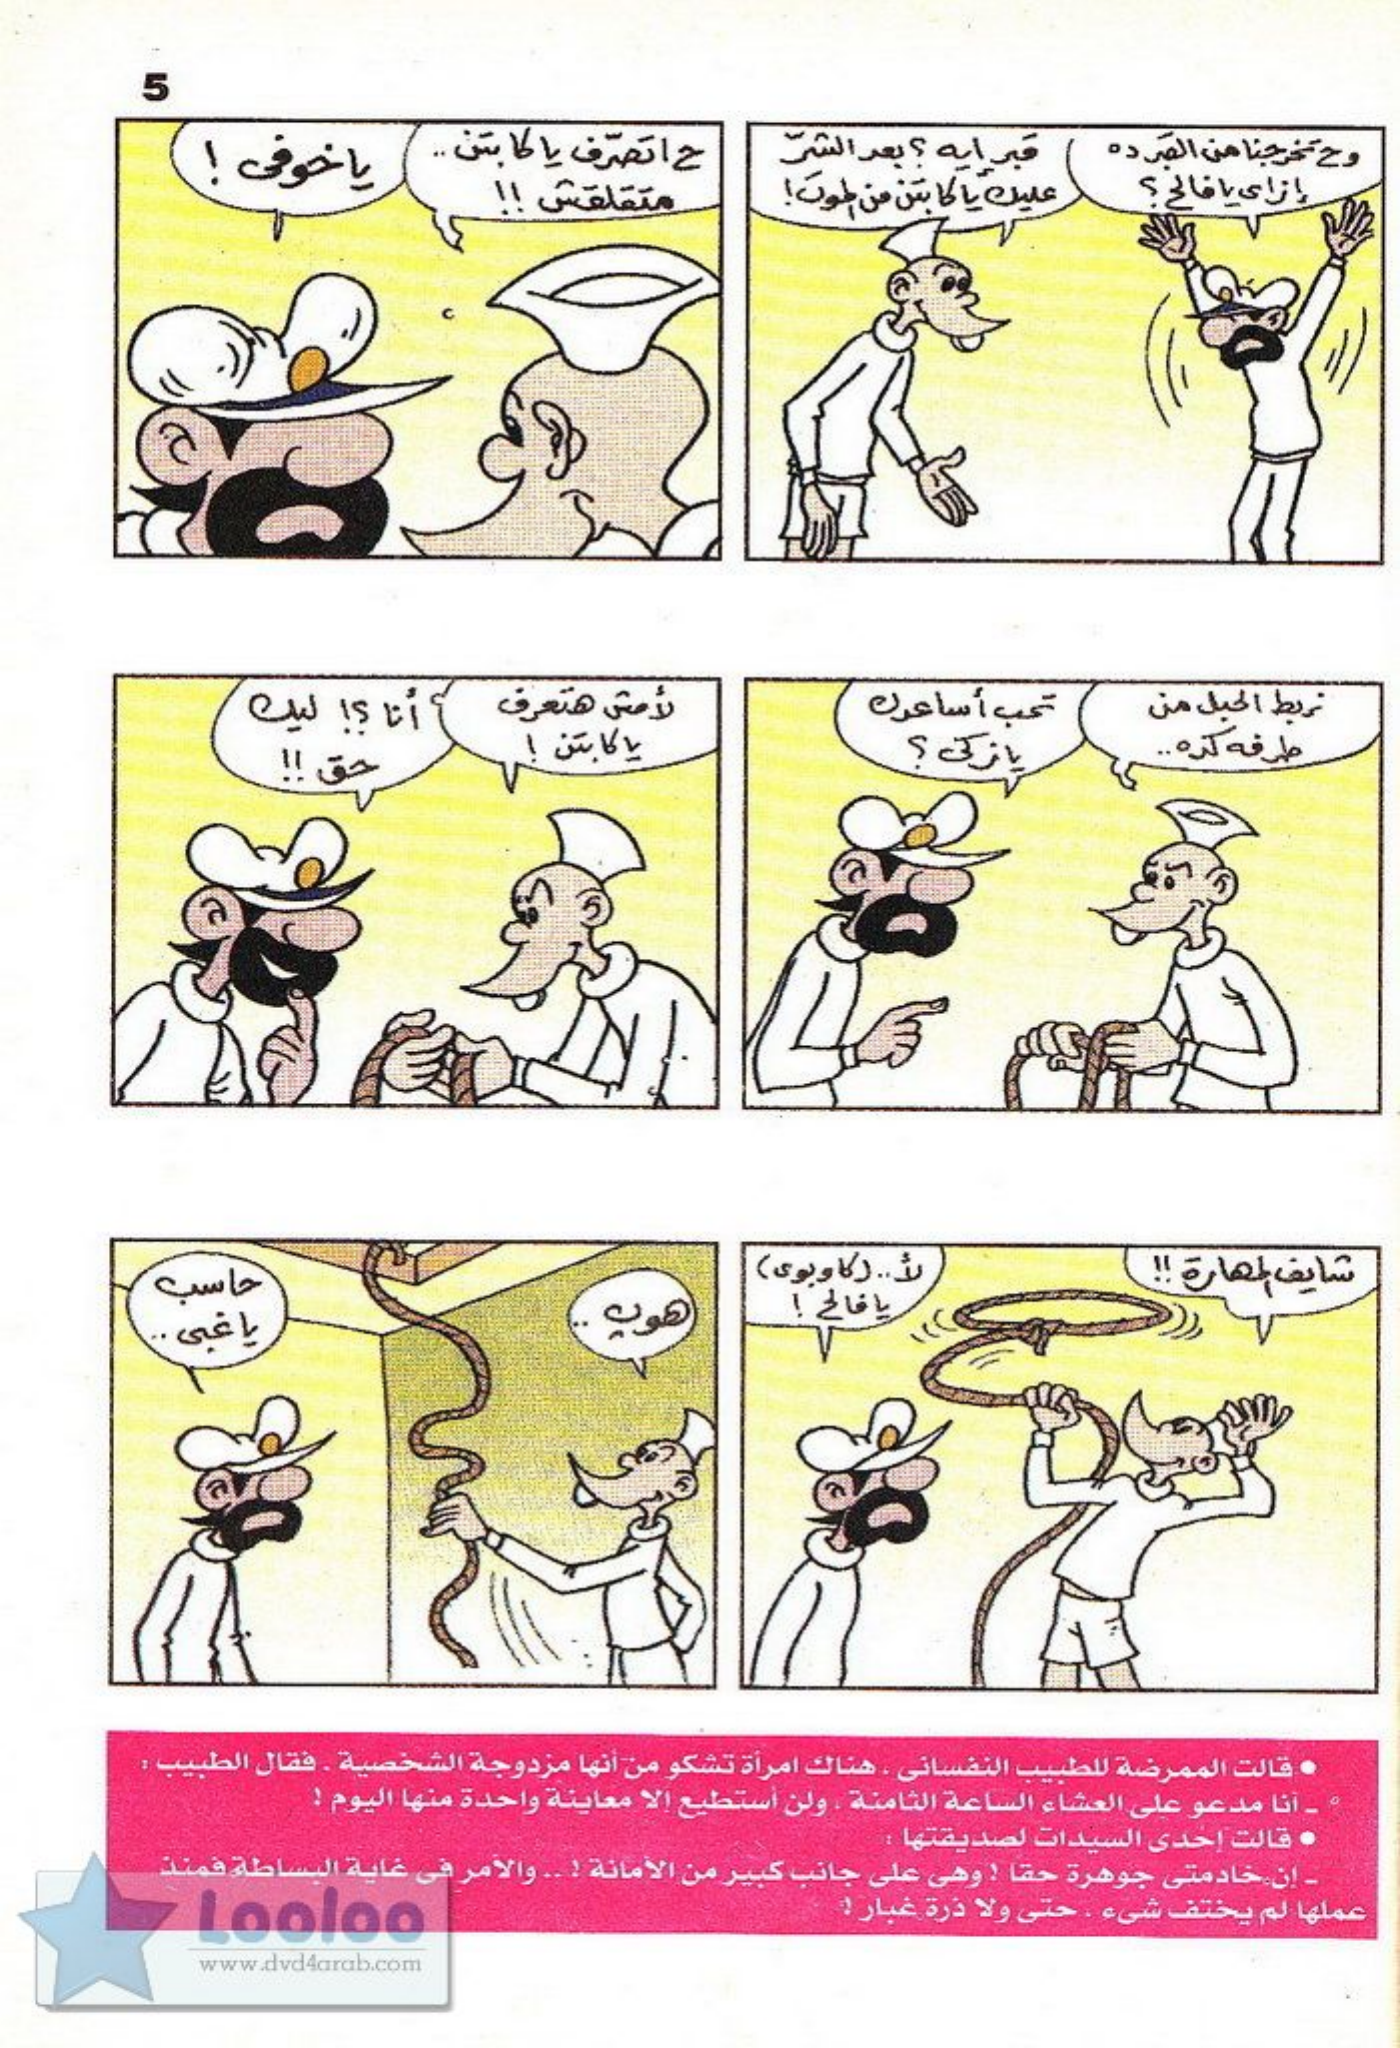 5
وح تخرجنا من القبر ده
إزاى يا فالح ؟
قبر إيه ؟ بعد الشرّ
عليك يا كابتن من الموت !
ح اتصرّف يا كابتن ..
متقلقش !!
يا خوفى !
نربط الحبل من
طرفه كده ..
تحب أساعدك
يا زكى ؟
لأ مش هتعرف
يا كابتن !
أنا ؟! ليك
حق !!
شايف المهارة !!
لأ .. (كاوبوى)
يا فالح !
هوب ..
حاسب
يا غبى ..
● قالت الممرضة للطبيب النفسانى ، هناك امرأة تشكو من أنها مزدوجة الشخصية . فقال الطبيب :
ـ أنا مدعو على العشاء الساعة الثامنة ، ولن أستطيع إلا معاينة واحدة منها اليوم !
● قالت إحدى السيدات لصديقتها :
ـ إن خادمتى جوهرة حقا ! وهى على جانب كبير من الأمانة ! .. والأمر فى غاية البساطة فمنذ
عملها لم يختف شىء ، حتى ولا ذرة غبار !
Looloo
www.dvd4arab.com